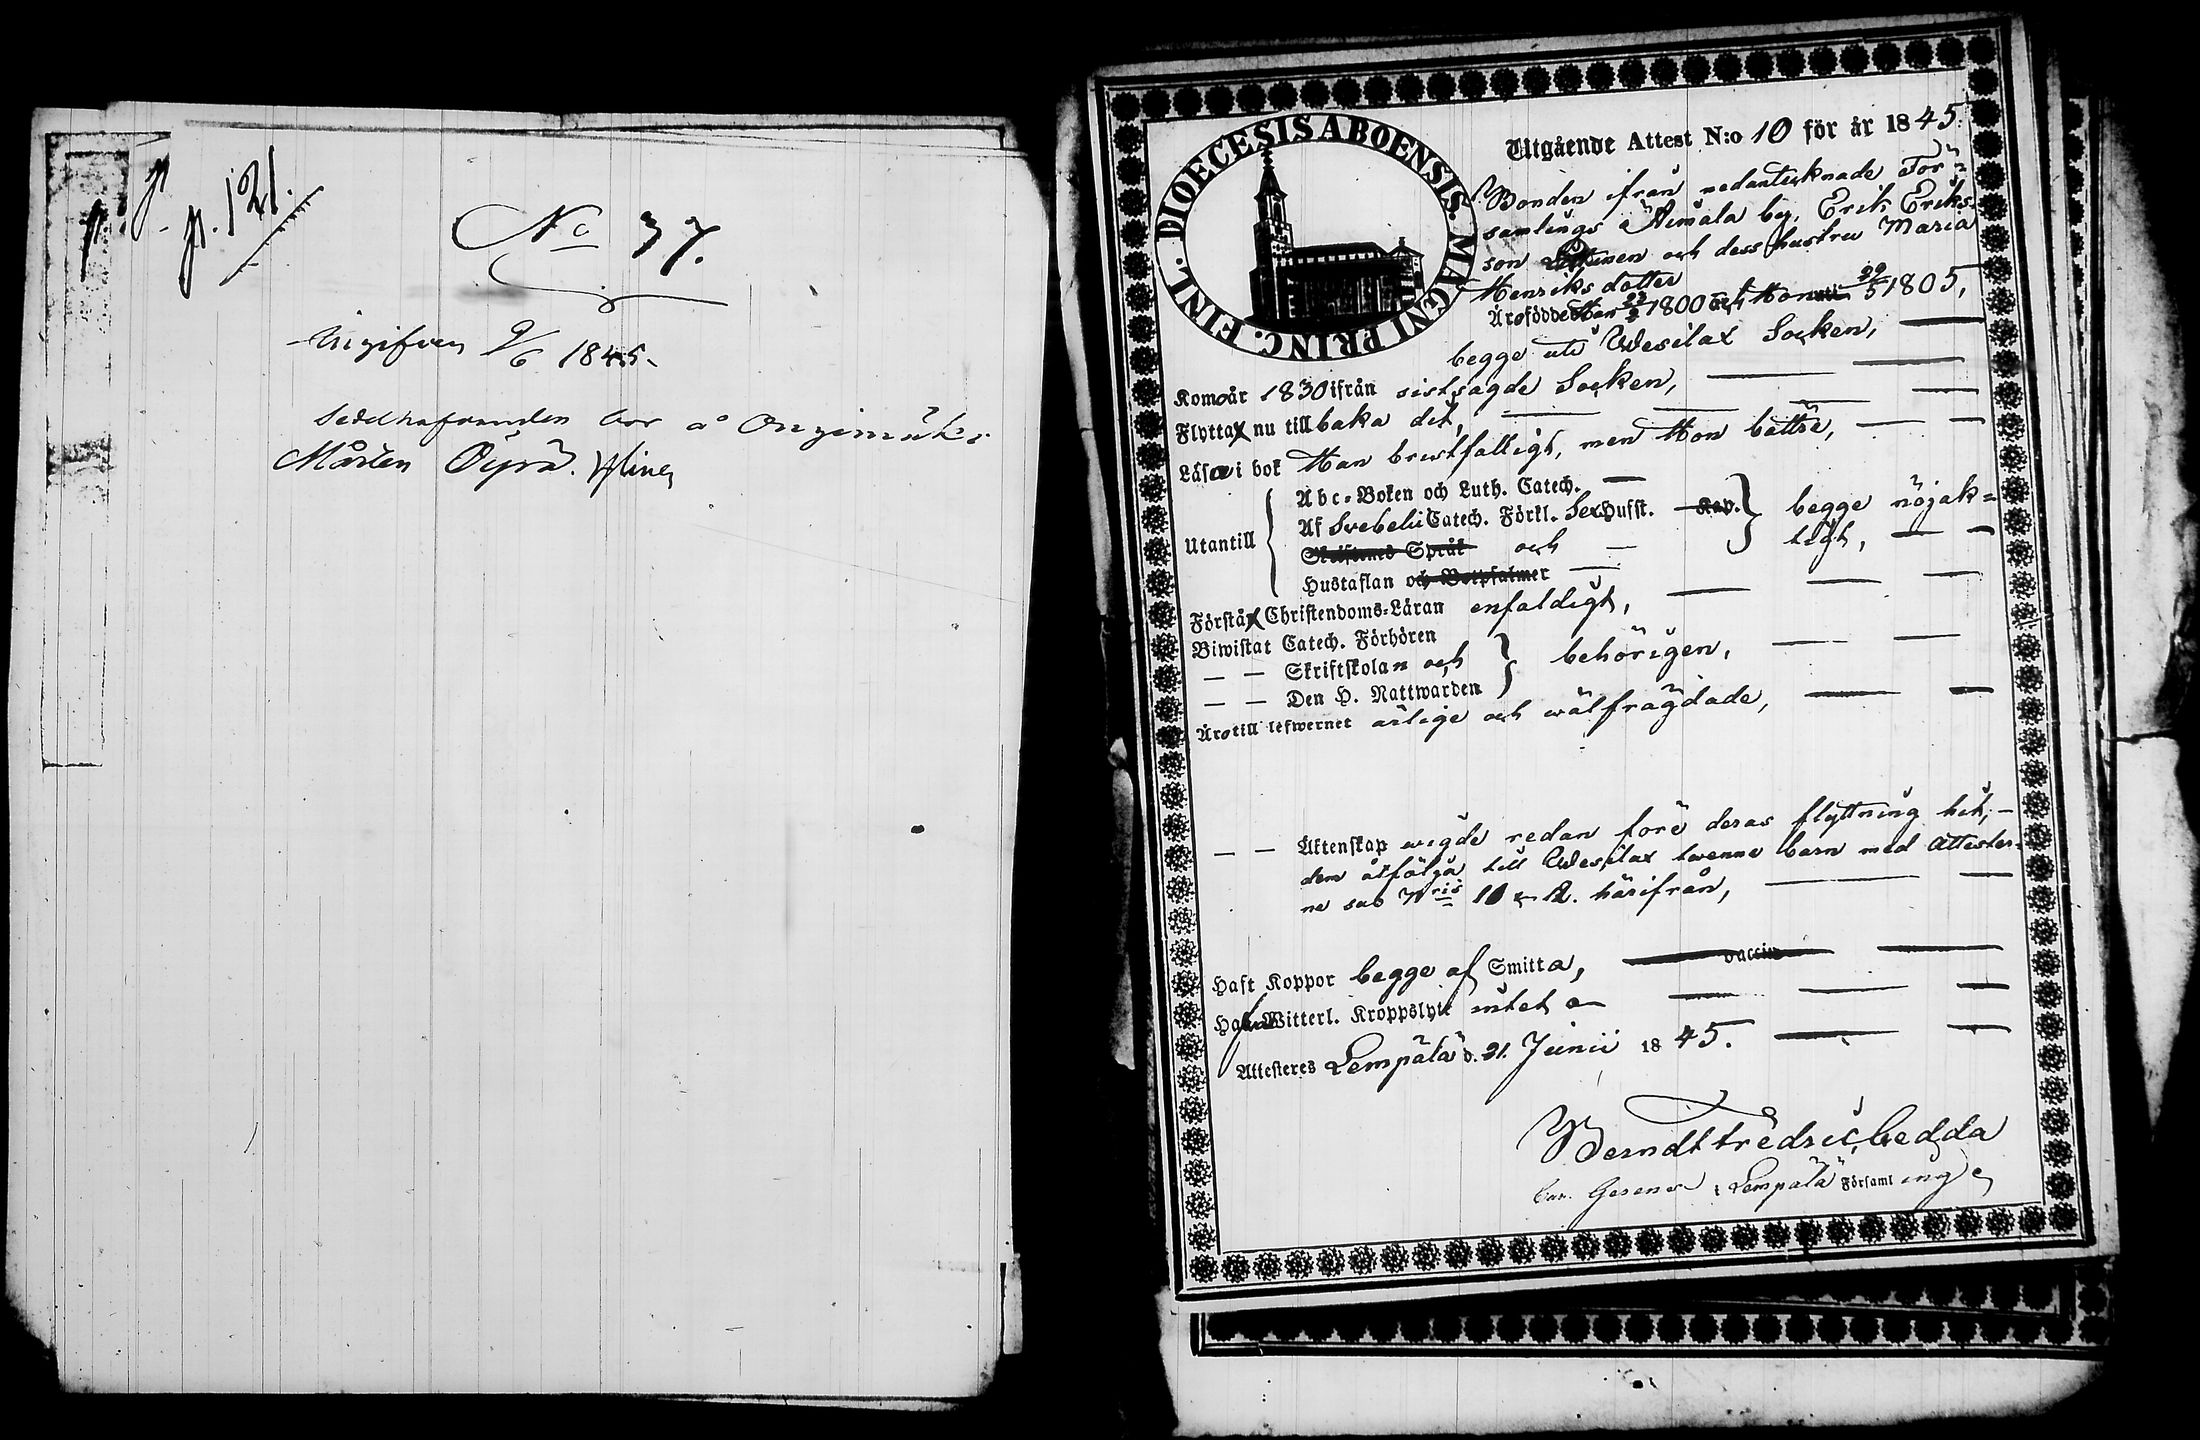 p. 121.
No 37.
Uigifven 9/6 1845.
Sedelhafvanden bor å
Mårten Öijrä.
DIOECESIS ABOENSIS. MAGNI PRINC. FINL.
Utgående Attest N:o 10 för år 1845.
Bonden ifrån nedantecknade För=
samlings Aimala by, Erik Eriks-
son och dess hustru Maria
Henriks dotter
Äro födde Han 23/2 1800 och Hon 29/5 1805,
begge uti Wesilax Socken,
Komo år 1830 ifrån sistsagde Socken,
Flytta nu till baka dit,
Läsa i bok Han bristfälligt, men Hon bättre,
Abc-Boken och Luth. Catech.
Af Svebelii Catech. Förkl. Sex Hufst. Kap. begge nöjak=
Utantill Skriftenes Språk och ligt,
Hustaflan och Botpsalmer
Förstå Christendoms-Läran enfaldigt,
Biwistat Catech. Förhören
— — Skriftskolan och behörigen,
— — Den H. Nattwarden
Äro till lefwernet ärlige och wälfrägdade,
— — Äktenskap wigde redan före deras flyttning hit,
dem åtfölja till Wesilax twenne barn med Attester-
ne sub Nris 11 & 12. härifrån,
Haft Koppor begge af Smitta, vaccin
Hafwa Witterl. Kroppslyte intet
Attesteras Lempälä d. 21 Junii 1845.
Berndt Fredric Gedda
i Lempälä Församling